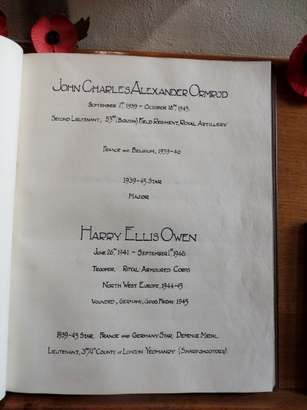 John Charles Alexander Ormrod
September 1st, 1939 - October 18th, 1945.
Second Lieutenant, 53rd (Bolton) Field Regiment, Royal Artillery.
France and Belgium, 1939-40
1939-45 Star
Major
Harry Ellis Owen
June 26th, 1941 - September 1st, 1946.
Trooper, Royal Armoured Corps
North West Europe, 1944-45
Wounded, Germany, Good Friday 1945
1939-45 Star, France and Germany Star, Defence Medal.
Lieutenant, 3rd/4th County of London Yeomanry (Sharpshooters)